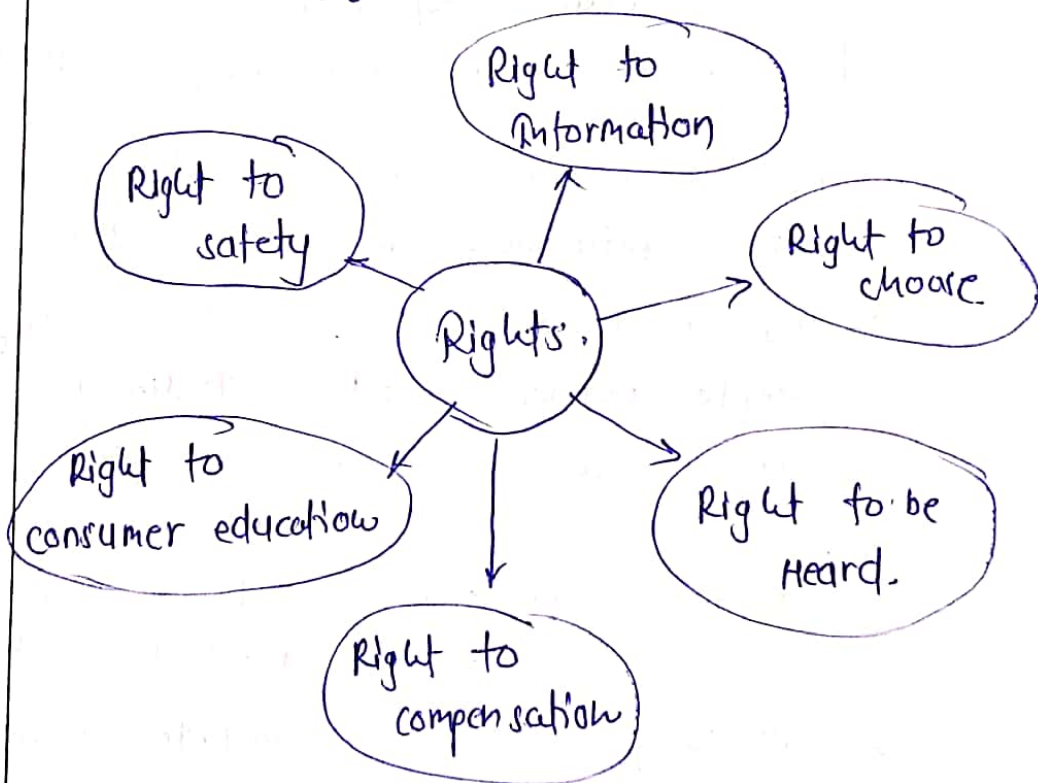 Right to
Information
Right to
safety
Right to
choose
Rights.
Right to
consumer education
Right to be
Heard.
Right to
compensation